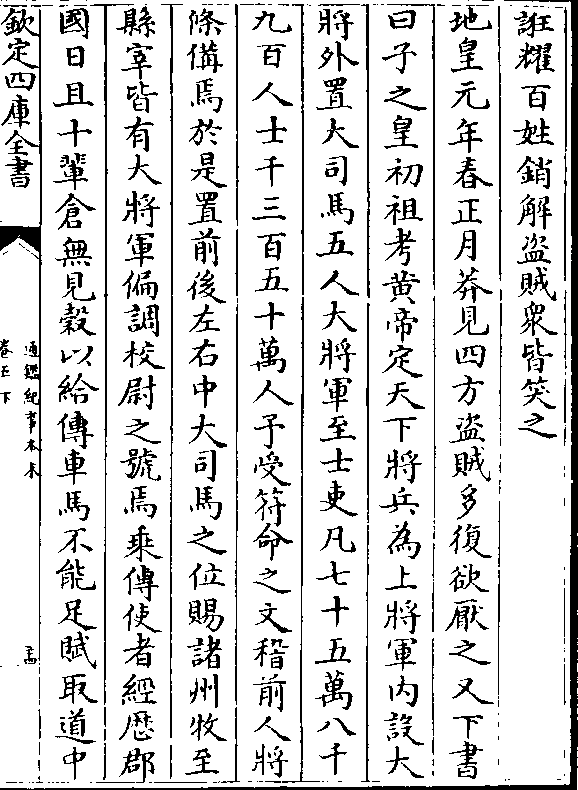 誑耀百姓銷解盜賊衆皆笑之
地皇元年春正月莽見四方盜賊多復欲厭之又下書
曰予之皇初祖考黃帝定天下將兵為上將軍内設大
將外置大司馬五人大將軍至士吏凡七十五萬八千
九百人士千三百五十萬人予受符命之文稽前人將
條備焉於是置前後左右中大司馬之位賜諸州牧至
縣宰皆有大將軍偏調校尉之號焉乘傳使者經歴郡
國日且十輩倉無見穀以給傳車馬不能足賦取道中
欽定四庫全書
通鑑紀事本末
卷五下